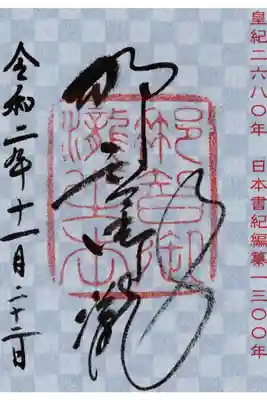 皇紀二六八〇年 日本書紀編纂一三〇〇年
那智御瀧
令和二年十一月二十二日